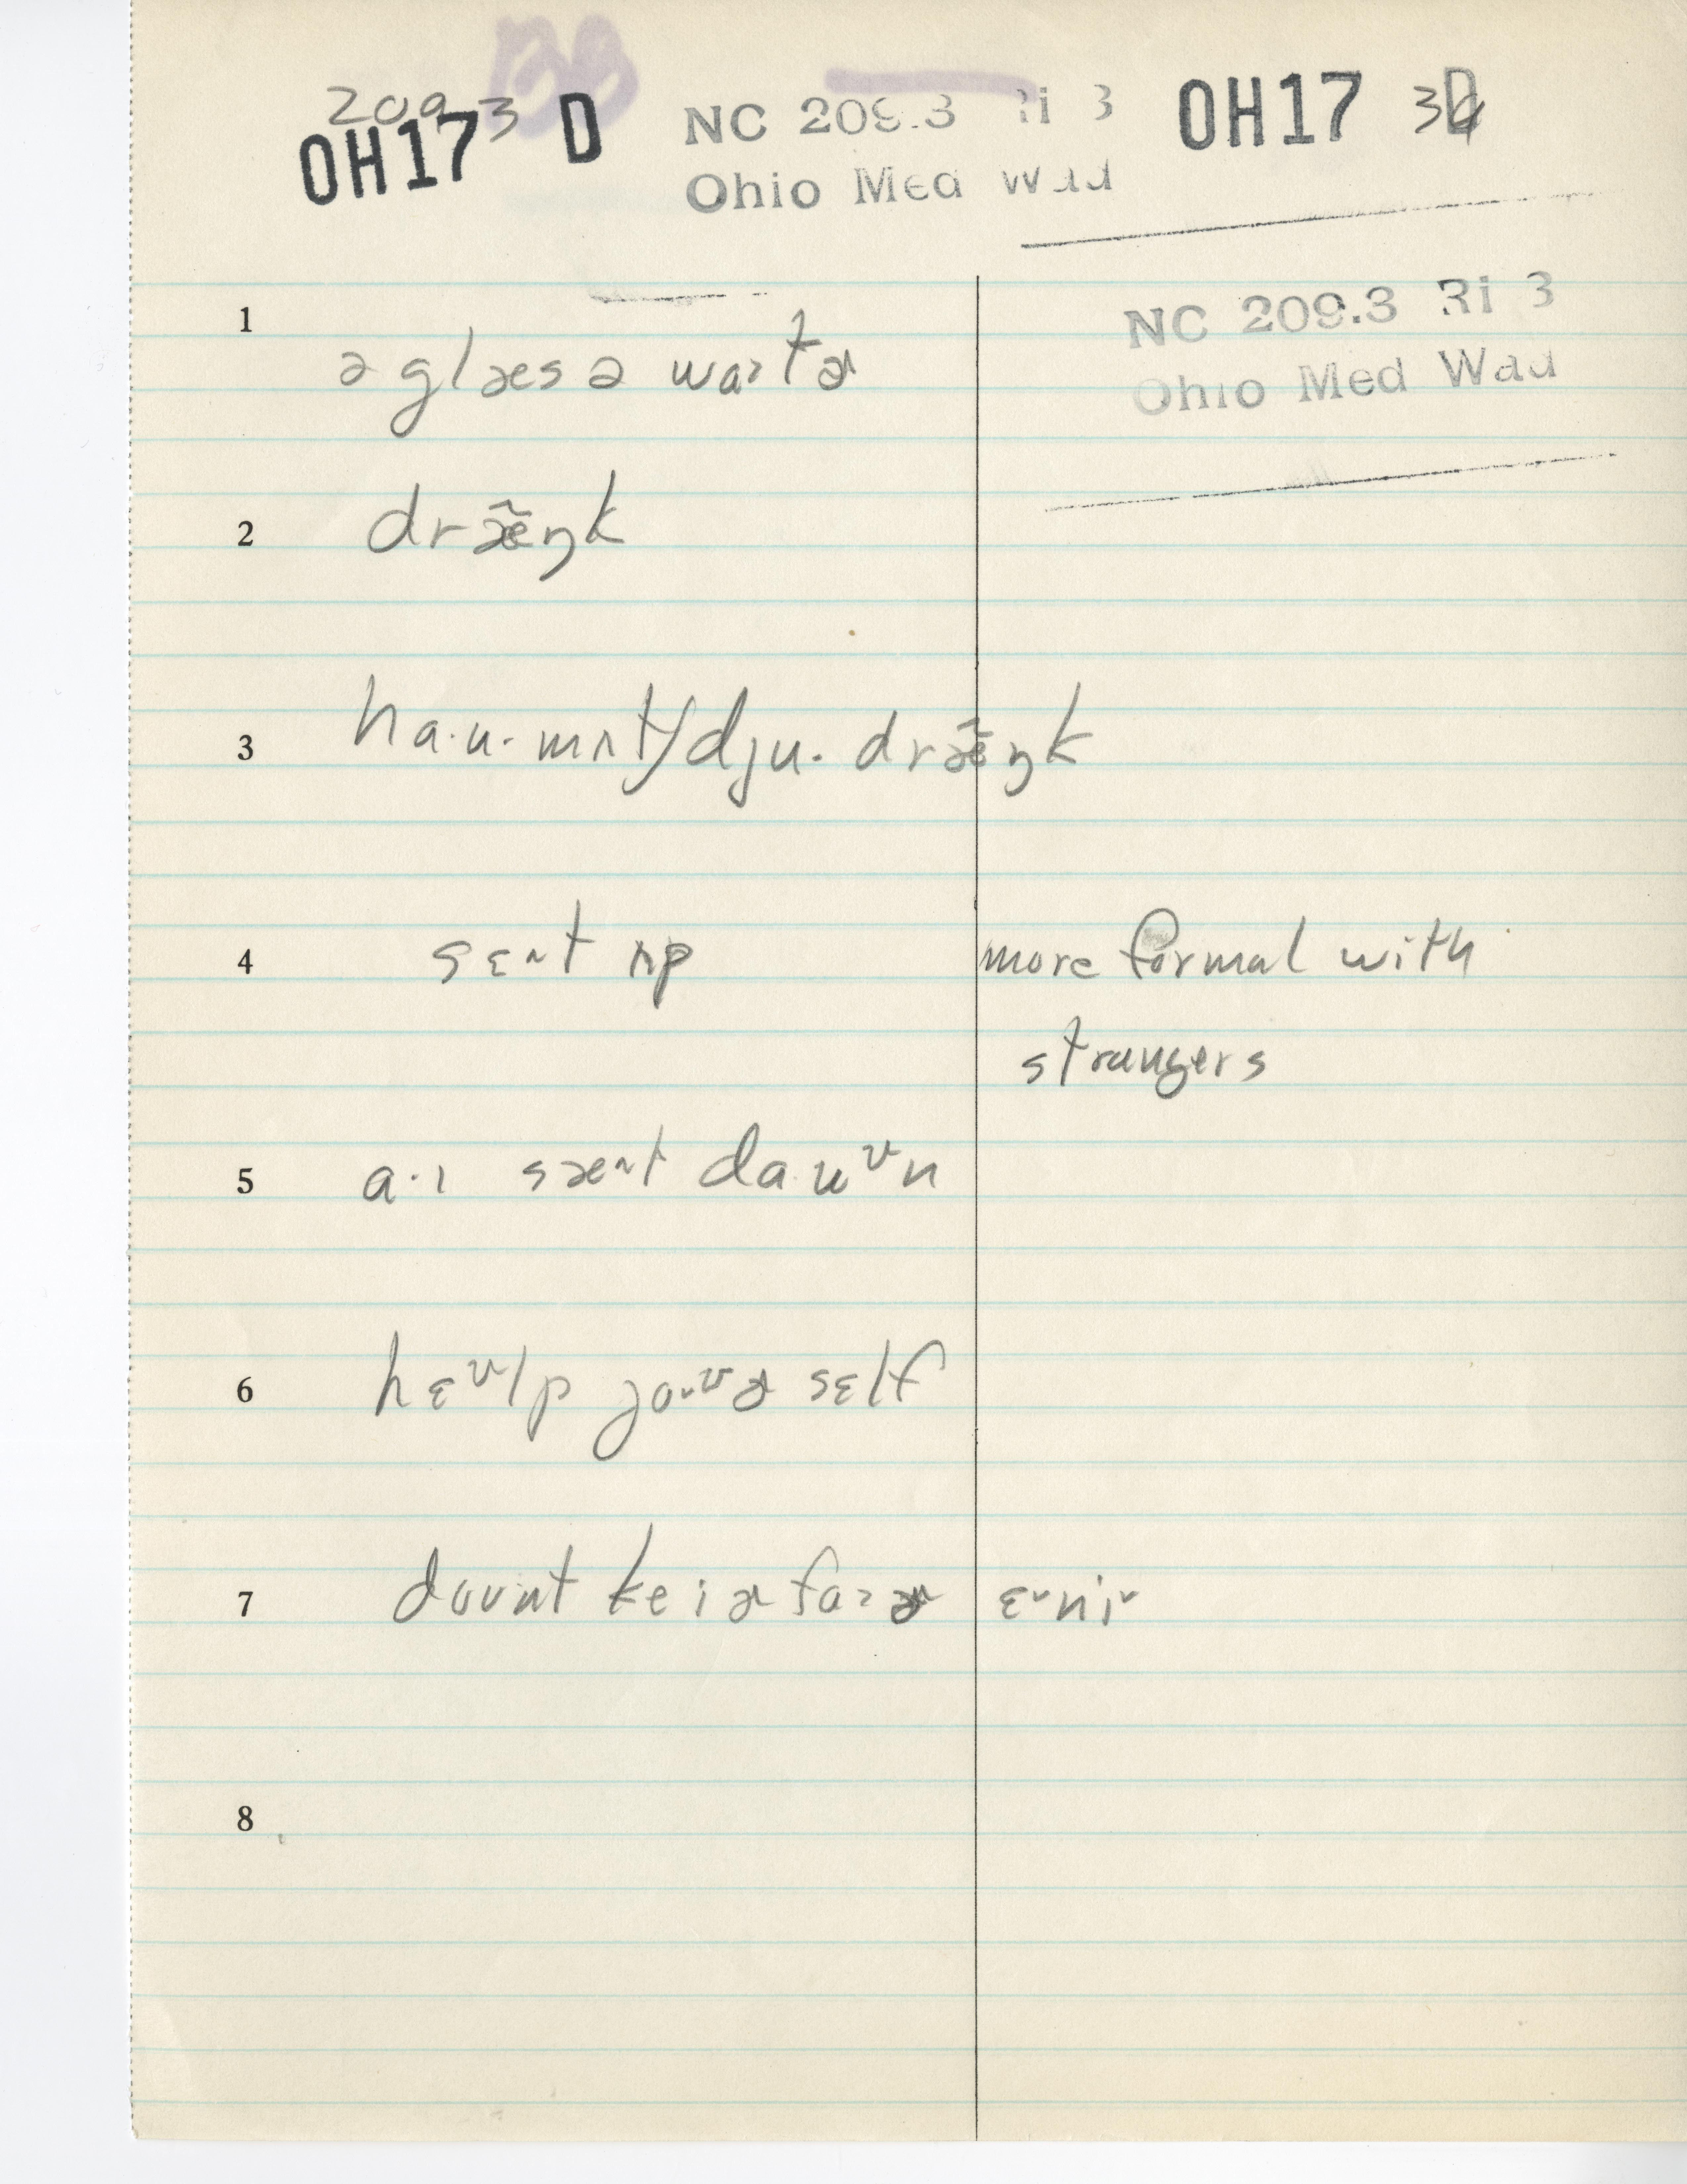 209 3
OH17 D
NC 209.3 Ri 3
Ohio Med Wad
OH17 3
NC 209.3 Ri 3
Ohio Med Wad
1 ə glæs ə wɑɚtɚ
2 dræ̃ŋk
3 ha·u· mʌtʃ dju· dræ̃ŋk
4 sɛ˄t ʌp more formal with
strangers
5 a·ɪ sæ˄t dauᵛn
6 hɛᵛlp joᵛɚ sɛlf
7 dount keiɚ faɚ ɛ˅ni˅
8